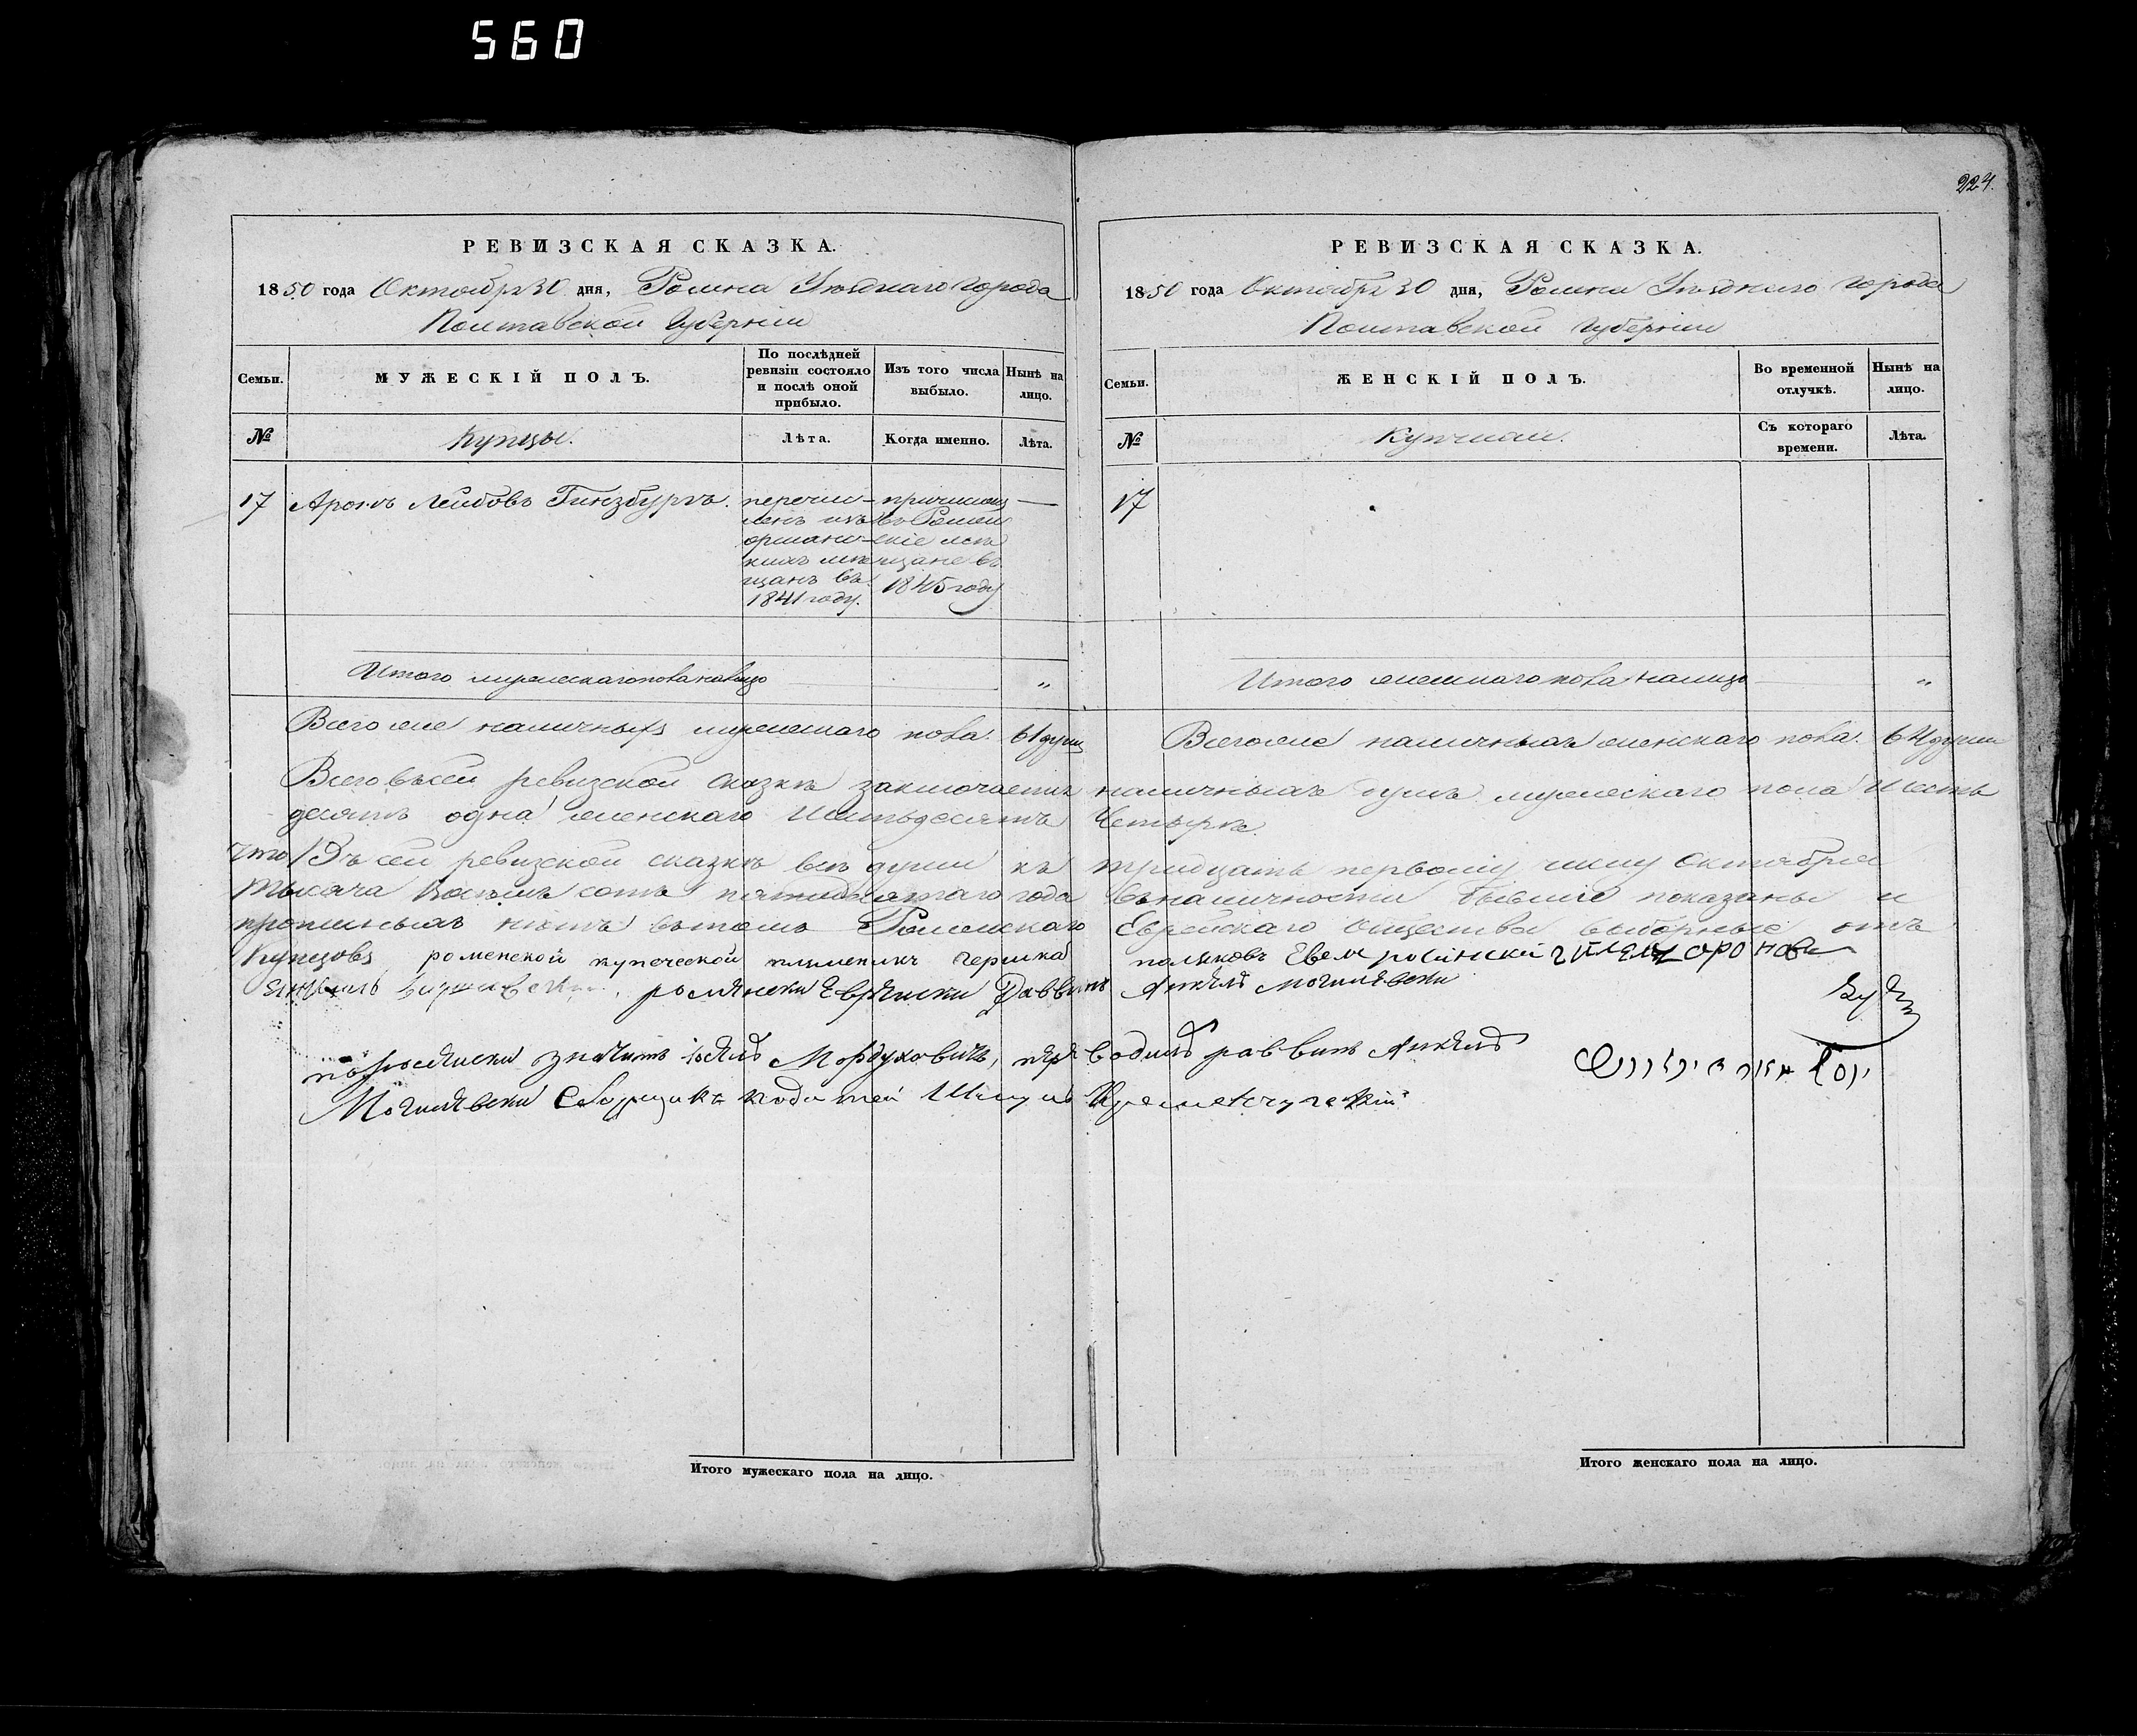 560
224.
РЕВИЗСКАЯ СКАЗКА.
1850 года Октября 30 дня, Ромна Уѣзднаго города
Полтавской Губернии
Семьи.
МУЖЕСКІЙ ПОЛЪ.
По послѣдней ревизіи состояло и послѣ оной прибыло.
Изъ того числа выбыло.
Нынѣ на лицо.
№
Купцы.
Лѣта.
Когда именно.
Лѣта.
17 Аронъ Лейбовъ Гинзбургъ.
перечис-
ленъ изъ
оршанс-
кихъ мѣ
щанъ въ
1841 году.
причисленъ
въ Ромен
скіе мѣ
щане въ
1845 году
—
Итого мужескаго пола налицо „
Всего же наличныхъ мужескаго пола. 61 душа
РЕВИЗСКАЯ СКАЗКА.
1850 года Октября 30 дня, Ромна Уѣзднаго города
Полтавской Губерніи
Семьи.
ЖЕНСКІЙ ПОЛЪ.
Во временной отлучкѣ.
Нынѣ на лицо.
№
Съ котораго времени.
Лѣта.
17
Итого женскаго пола налицо „
Всего же наличныхъ женскаго пола. 64 души
Всего въ сей ревизской сказкѣ заключается наличныхъ душъ мужескаго пола шесть
десятъ одна женскаго шестьдесятъ четыре.
Что въ сей ревизской сказкѣ всѣ души къ тридцать первому числу Октября
тысяча восемь сотъ пятидесятаго года въ наличности бывшіе показаны и
прописныхъ нѣтъ въ томъ Роменскаго Еврейскаго Общества выборные отъ
Купцовъ роменской купеческой племеникъ гершка поляковъ
роменски Евреиски Раввинъ Анкель могилевски
значитъ Іосель Мордуховичъ, переводилъ раввинъ Анкель
Могилевски Сборщикъ податей Шмуль Кременчугскій
Итого мужескаго пола на лицо.
Итого женскаго пола на лицо.